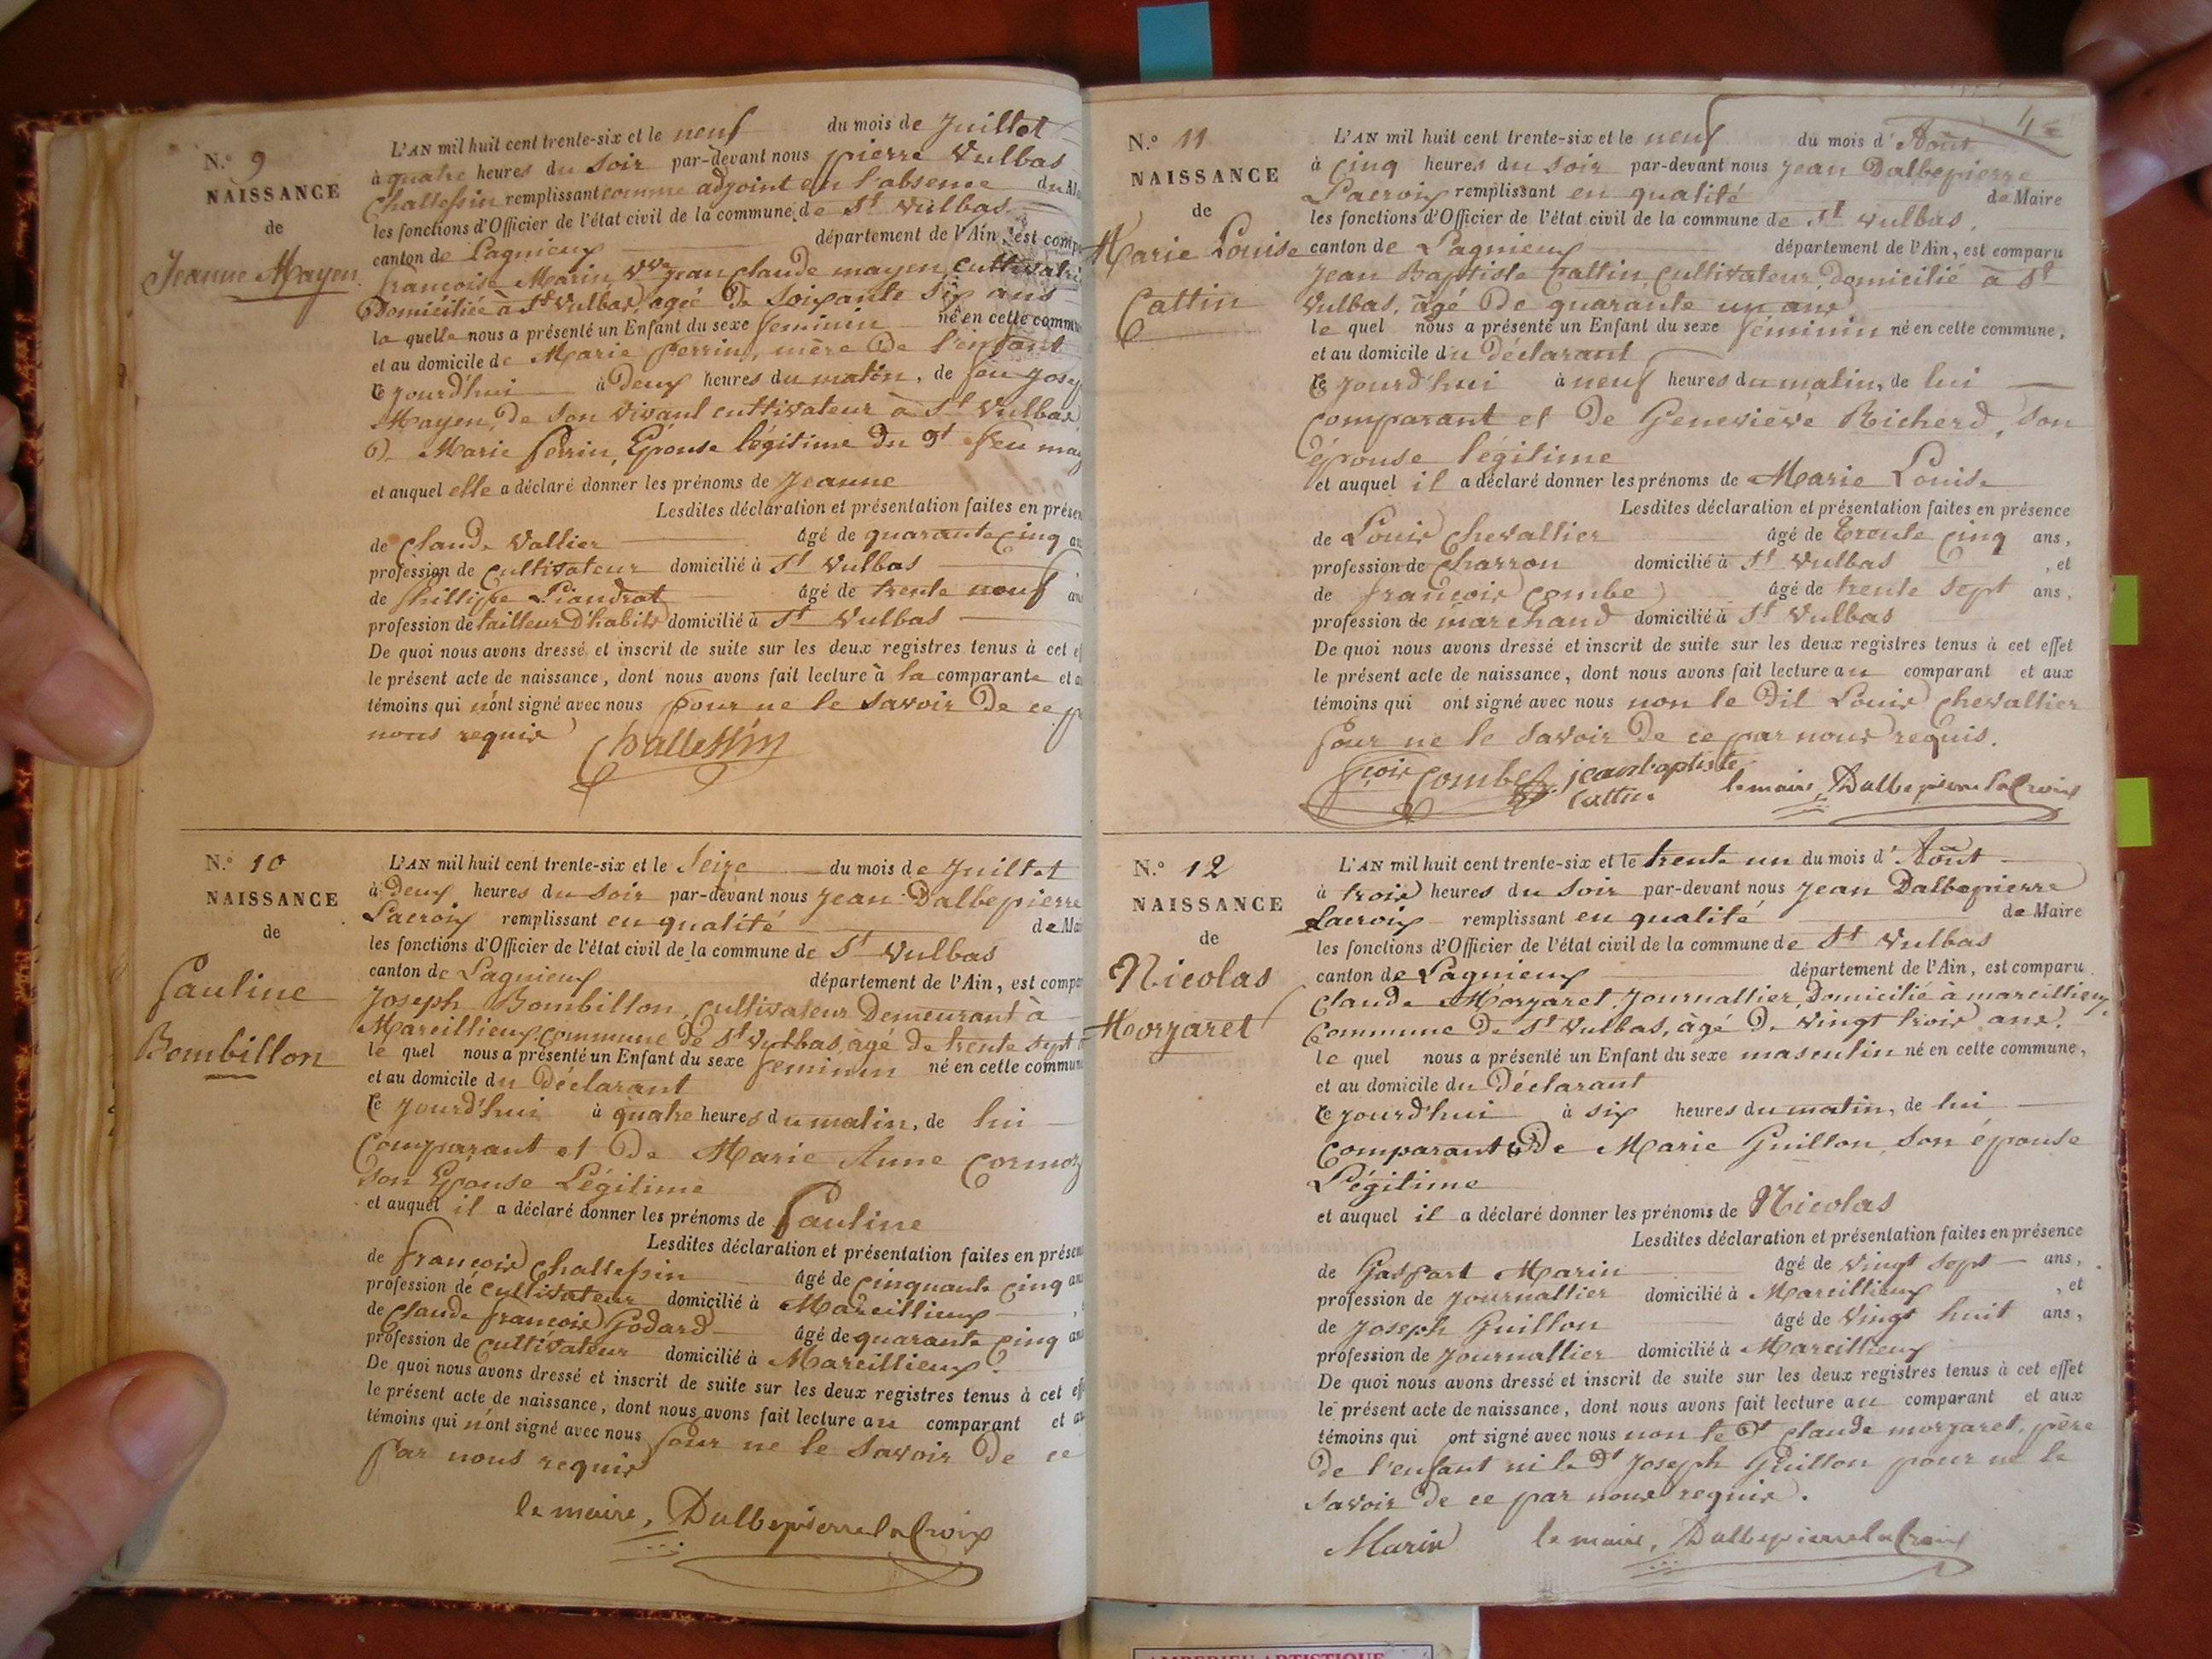 N.o 9
NAISSANCE
de
Jeanne Mayen.
L'AN mil huit cent trente-six et le neuf du mois de Juillet
à quatre heures du soir par-devant nous pierre Vulbas
Challessin remplissant comme adjoint en l'absence du
les fonctions d'Officier de l'état civil de la commune de St Vulbas
canton de Lagnieux département de l'Ain, est
francoise Marin, Vve jean claude mayen,
Domiciliée à St Vulbas, agée de Soixante six ans
la quelle nous a présenté un Enfant du sexe feminin né en cette
et au domicile de Marie perrin, mère De l'enfant
Ce jourd'hui à Deux heures du matin, de feu
Mayen, De Son Vivant cultivateur à St Vulbas
Marie perrin, Epouse légitime du dt feu
et auquel elle a déclaré donner les prénoms de Jeanne
Lesdites déclaration et présentation faites en
de Claude Vallier âgé de quarante Cinq
profession de Cultivateur domicilié à St Vulbas
de phillippe âgé de trente neuf
profession de tailleur D'habits domicilié à St Vulbas
De quoi nous avons dressé et inscrit de suite sur les deux registres tenus à cet
le présent acte de naissance, dont nous avons fait lecture à la comparante et
témoins qui n'ont signé avec nous pour ne le savoir De ce
nous requis
Challessin
N.o 10
NAISSANCE
de
Pauline
Bombillon
L'AN mil huit cent trente-six et le Seize du mois de Juillet
à deux heures du soir par-devant nous Jean Dalbepierre
Lacroix remplissant en qualité de
les fonctions d'Officier de l'état civil de la commune de St Vulbas
canton de Lagnieux département de l'Ain, est
Joseph Bombillon, Cultivateur Demeurant à
Mareillieux, Commune de St Vulbas, âgé de trente sept
le quel nous a présenté un Enfant du sexe feminin né en cette
et au domicile du Déclarant
Ce jourd'hui à quatre heures du matin, de lui
Comparant et De Marie Anne Cormoz
Son Epouse Légitime
et auquel il a déclaré donner les prénoms de Pauline
Lesdites déclaration et présentation faites en
de françois Challessin âgé de Cinquante Cinq
profession de Cultivateur domicilié à Mareillieux
de Claude françois Godard âgé de quarante Cinq
profession de Cultivateur domicilié à Mareillieux.
De quoi nous avons dressé et inscrit de suite sur les deux registres tenus à cet
le présent acte de naissance, dont nous avons fait lecture au comparant et
témoins qui n'ont signé avec nous pour ne le savoir De ce
par nous requis
le maire, Dalbepierre laCroix
4
N.o 11
NAISSANCE
de
Marie Louise
Cattin
L'AN mil huit cent trente-six et le neuf du mois d'Août
à Cinq heures du soir par-devant nous Jean Dalbepierre
Lacroix remplissant en qualité de Maire
les fonctions d'Officier de l'état civil de la commune de St Vulbas.
canton de Lagnieux département de l'Ain, est comparu
Jean Baptiste Cattin, Cultivateur, domicilié à St
Vulbas, âgé de quarante un ans
le quel nous a présenté un Enfant du sexe féminin né en cette commune,
et au domicile du déclarant
Ce jourd'hui à neuf heures du matin, de lui
Comparant et De Geneviève Richerd, Son
épouse légitime
et auquel il a déclaré donner les prénoms de Marie Louise
Lesdites déclaration et présentation faites en présence
de Louis Chevallier âgé de trente Cinq ans,
profession de Charron domicilié à St Vulbas , et
de françois Combe âgé de trente Sept ans,
profession de marchand domicilié à St Vulbas
De quoi nous avons dressé et inscrit de suite sur les deux registres tenus à cet effet
le présent acte de naissance, dont nous avons fait lecture au comparant et aux
témoins qui ont signé avec nous non le Dit Louis Chevallier
pour ne le Savoir De ce par nous requis.
fçois Combe jean baptiste
Cattin le maire, Dalbepierre laCroix
N.o 12
NAISSANCE
de
Nicolas
Morgaret
L'AN mil huit cent trente-six et le trente un du mois d'Août
à trois heures du soir par-devant nous Jean Dalbepierre
Lacroix remplissant en qualité de Maire
les fonctions d'Officier de l'état civil de la commune de St Vulbas
canton de Lagnieux département de l'Ain, est comparu
Claude Morgaret, Journallier, Domicilié à mareillieux,
Commune de St Vulbas, âgé De vingt trois ans.
le quel nous a présenté un Enfant du sexe masculin né en cette commune,
et au domicile du Déclarant
Ce jourd'hui à six heures du matin, de lui
Comparant & De Marie Guillon, Son épouse
Légitime
et auquel il a déclaré donner les prénoms de Nicolas
Lesdites déclaration et présentation faites en présence
de Gaspart Marin âgé de vingt sept ans,
profession de Journallier domicilié à Mareillieux , et
de Joseph Guillon âgé de vingt huit ans,
profession de Journallier domicilié à Mareillieux
De quoi nous avons dressé et inscrit de suite sur les deux registres tenus à cet effet
le présent acte de naissance, dont nous avons fait lecture au comparant et aux
témoins qui ont signé avec nous non le dt claude morgaret, père
De l'enfant ni le dt Joseph Guillon pour ne le
Savoir De ce par nous requis.
Marin le maire, Dalbepierre laCroix